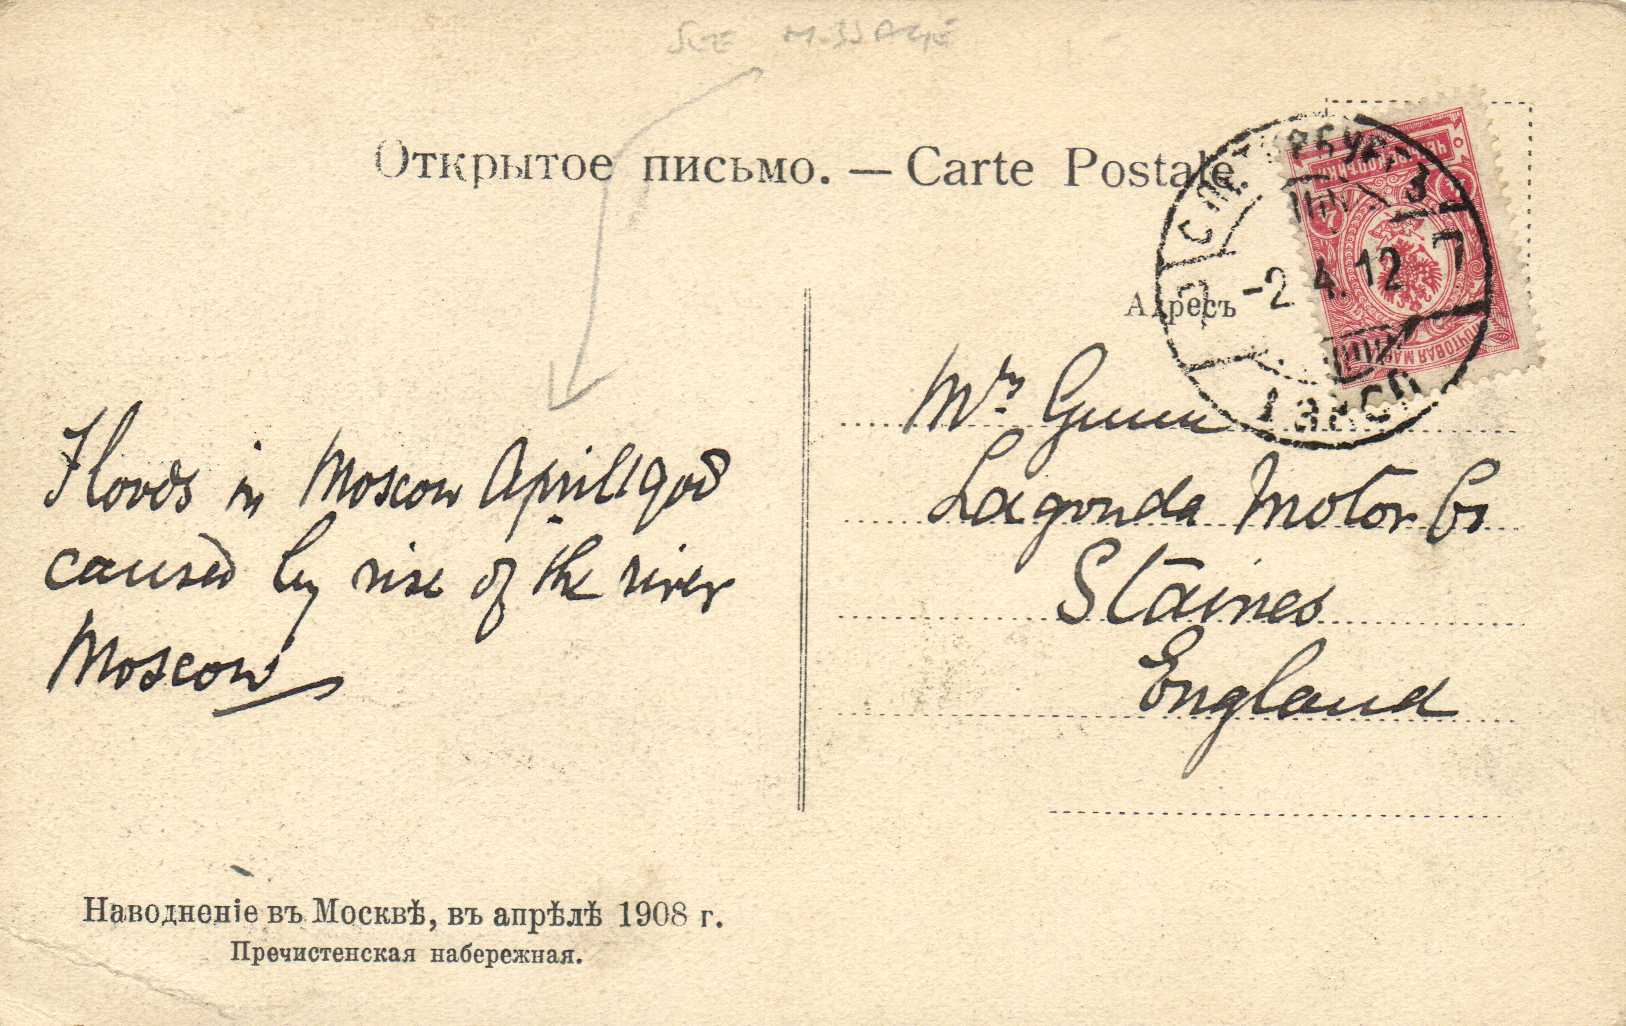 SEE MESSAGE
Открытое письмо. — Carte Postale
Адресъ
С.ПЕТЕРБУРГ
-2.4.12
ПОЧТОВАЯ МАРКА
Mrs Gunn
Lagonda Motor Co
Staines
England
Floods in Moscow April 1908
caused by rise of the river
Moscow
Наводненіе въ Москвѣ, въ апрѣлѣ 1908 г.
Пречистенская набережная.